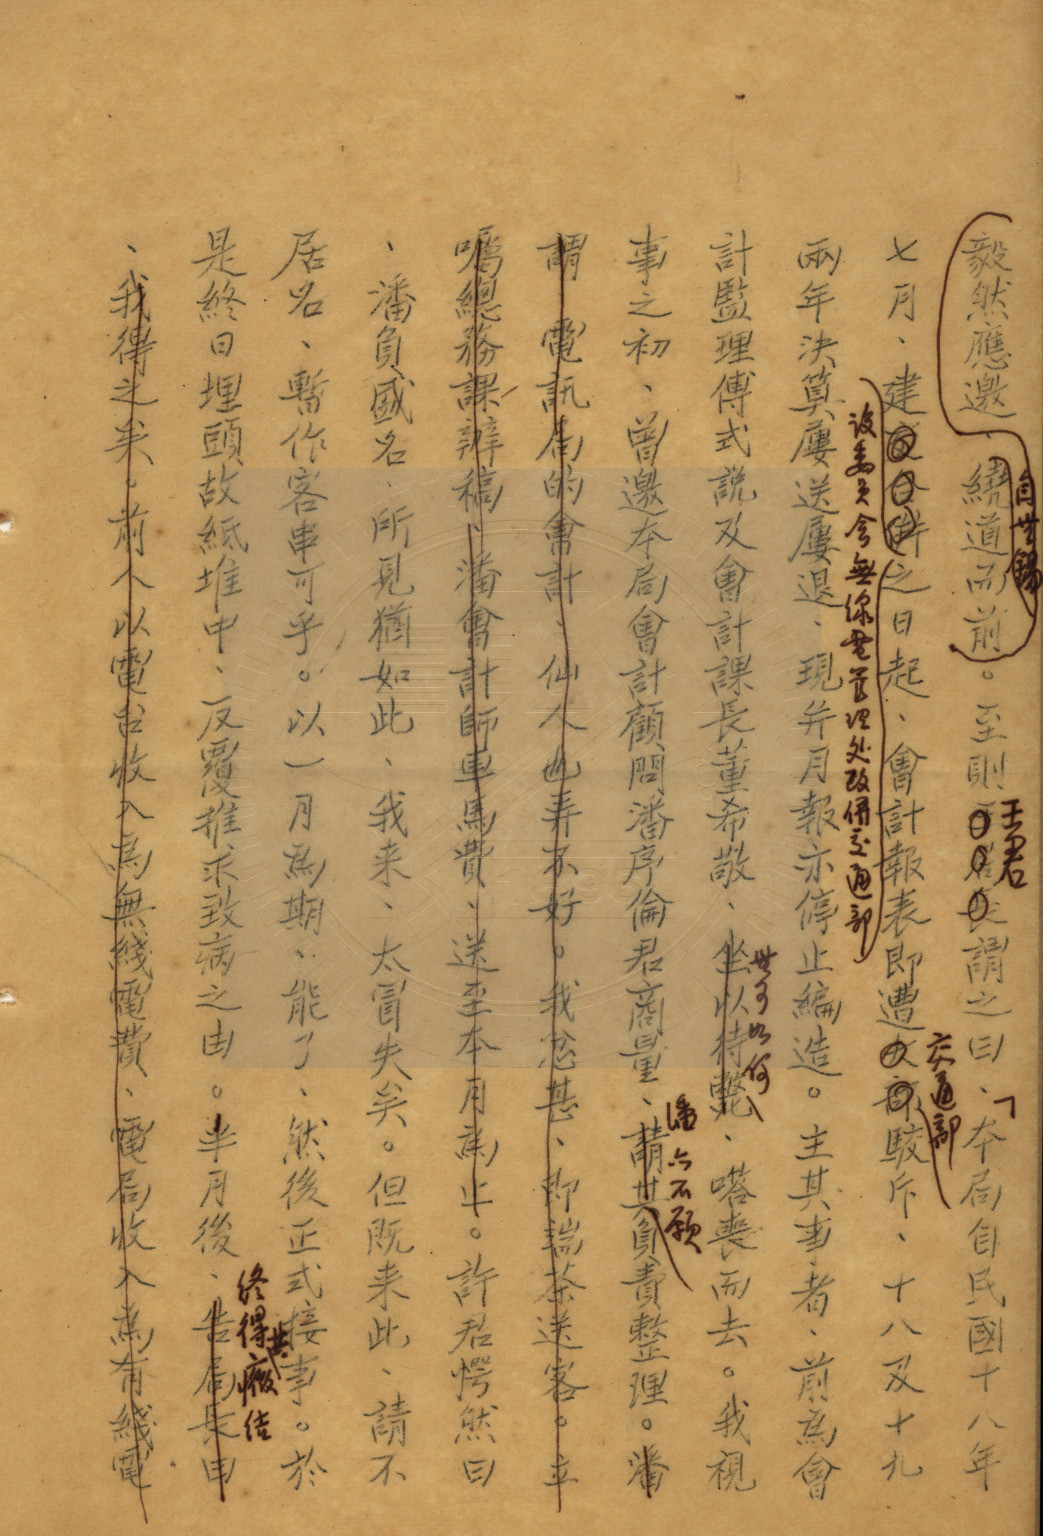 毅然應邀、繞道而前。至則長謂之曰、本局自民國十八年
自無錫
王君
「
七月、建併之日起、會計報表即遭部駁斥、十八及十九
設委員會無線電管理处改併交通部
交通部
兩年決算屢送屢退、現并月報亦停止編造。主其事者、前為會
計監理傅式說及會計課長董希敬、坐以待斃、嗒喪而去。我視
無可如何
事之初、曾邀本局會計顧問潘序倫君商量、請其負責整理。潘
潘亦不願
謂、電訊局的會計、仙人也弄不好。我忿甚、即端茶送客。立
囑總務課辦稿、潘會計師車馬費、送至本月為止。許君愕然曰
、潘負盛名、所見猶如此、我来、太冒失矣。但既来此、請不
居名、暫作客串可乎。以一月為期、能了、然後正式接事。於
是終日埋頭故紙堆中、反覆推求致病之由。半月後、告局長曰
終得其癥结
、我得之矣。前人以電台收入為無綫電費、電局收入為有綫電